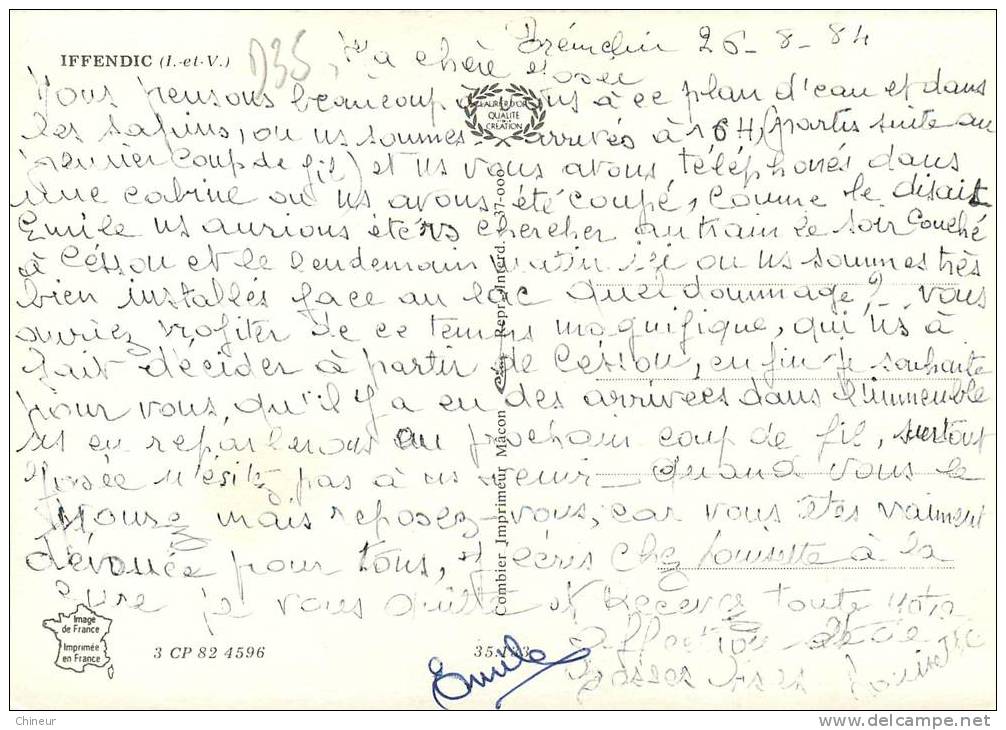 IFFENDIC (I.-et-V.)
D35
Trémelin 26-8-84
Ma chère Josée
Nous pensons beaucoup à vous à ce plan d'eau et dans
les sapins, où ns sommes arrivés à 16H, (partis suite au
premier coup de fil) et ns vous avons téléphonés dans
une cabine où ns avons été coupé, comme le disait
Emile ns aurions été vs chercher au train le soir couché
à Césson et le lendemain matin ici où ns sommes très
bien installés face au lac Quel dommage? vous
auriez profiter de ce temps magnifique, qui ns à
fait décider à partir de Cesson, enfin je souhaite
pour vous, qu'il y a eu des arrivées dans l'immeuble
ns en reparlerons au prochain coup de fil, surtout
Josée n'ésitez pas à ns venir quand vous le
mais reposez-vous, car vous êtes vraiment
dévouée pour tous, écris chez Louisette à la
je vous quitte et Recevez toute notre
Affection
Grosses Bises Louisette
Emile
LAURIER D'OR
QUALITÉ
CRÉATION
Combier Imprimeur Mâcon Cim Repr. Interd. 37-000
Image
de France
Imprimée
en France
3 CP 82 4596
35.133
Chineur
delcampe.net